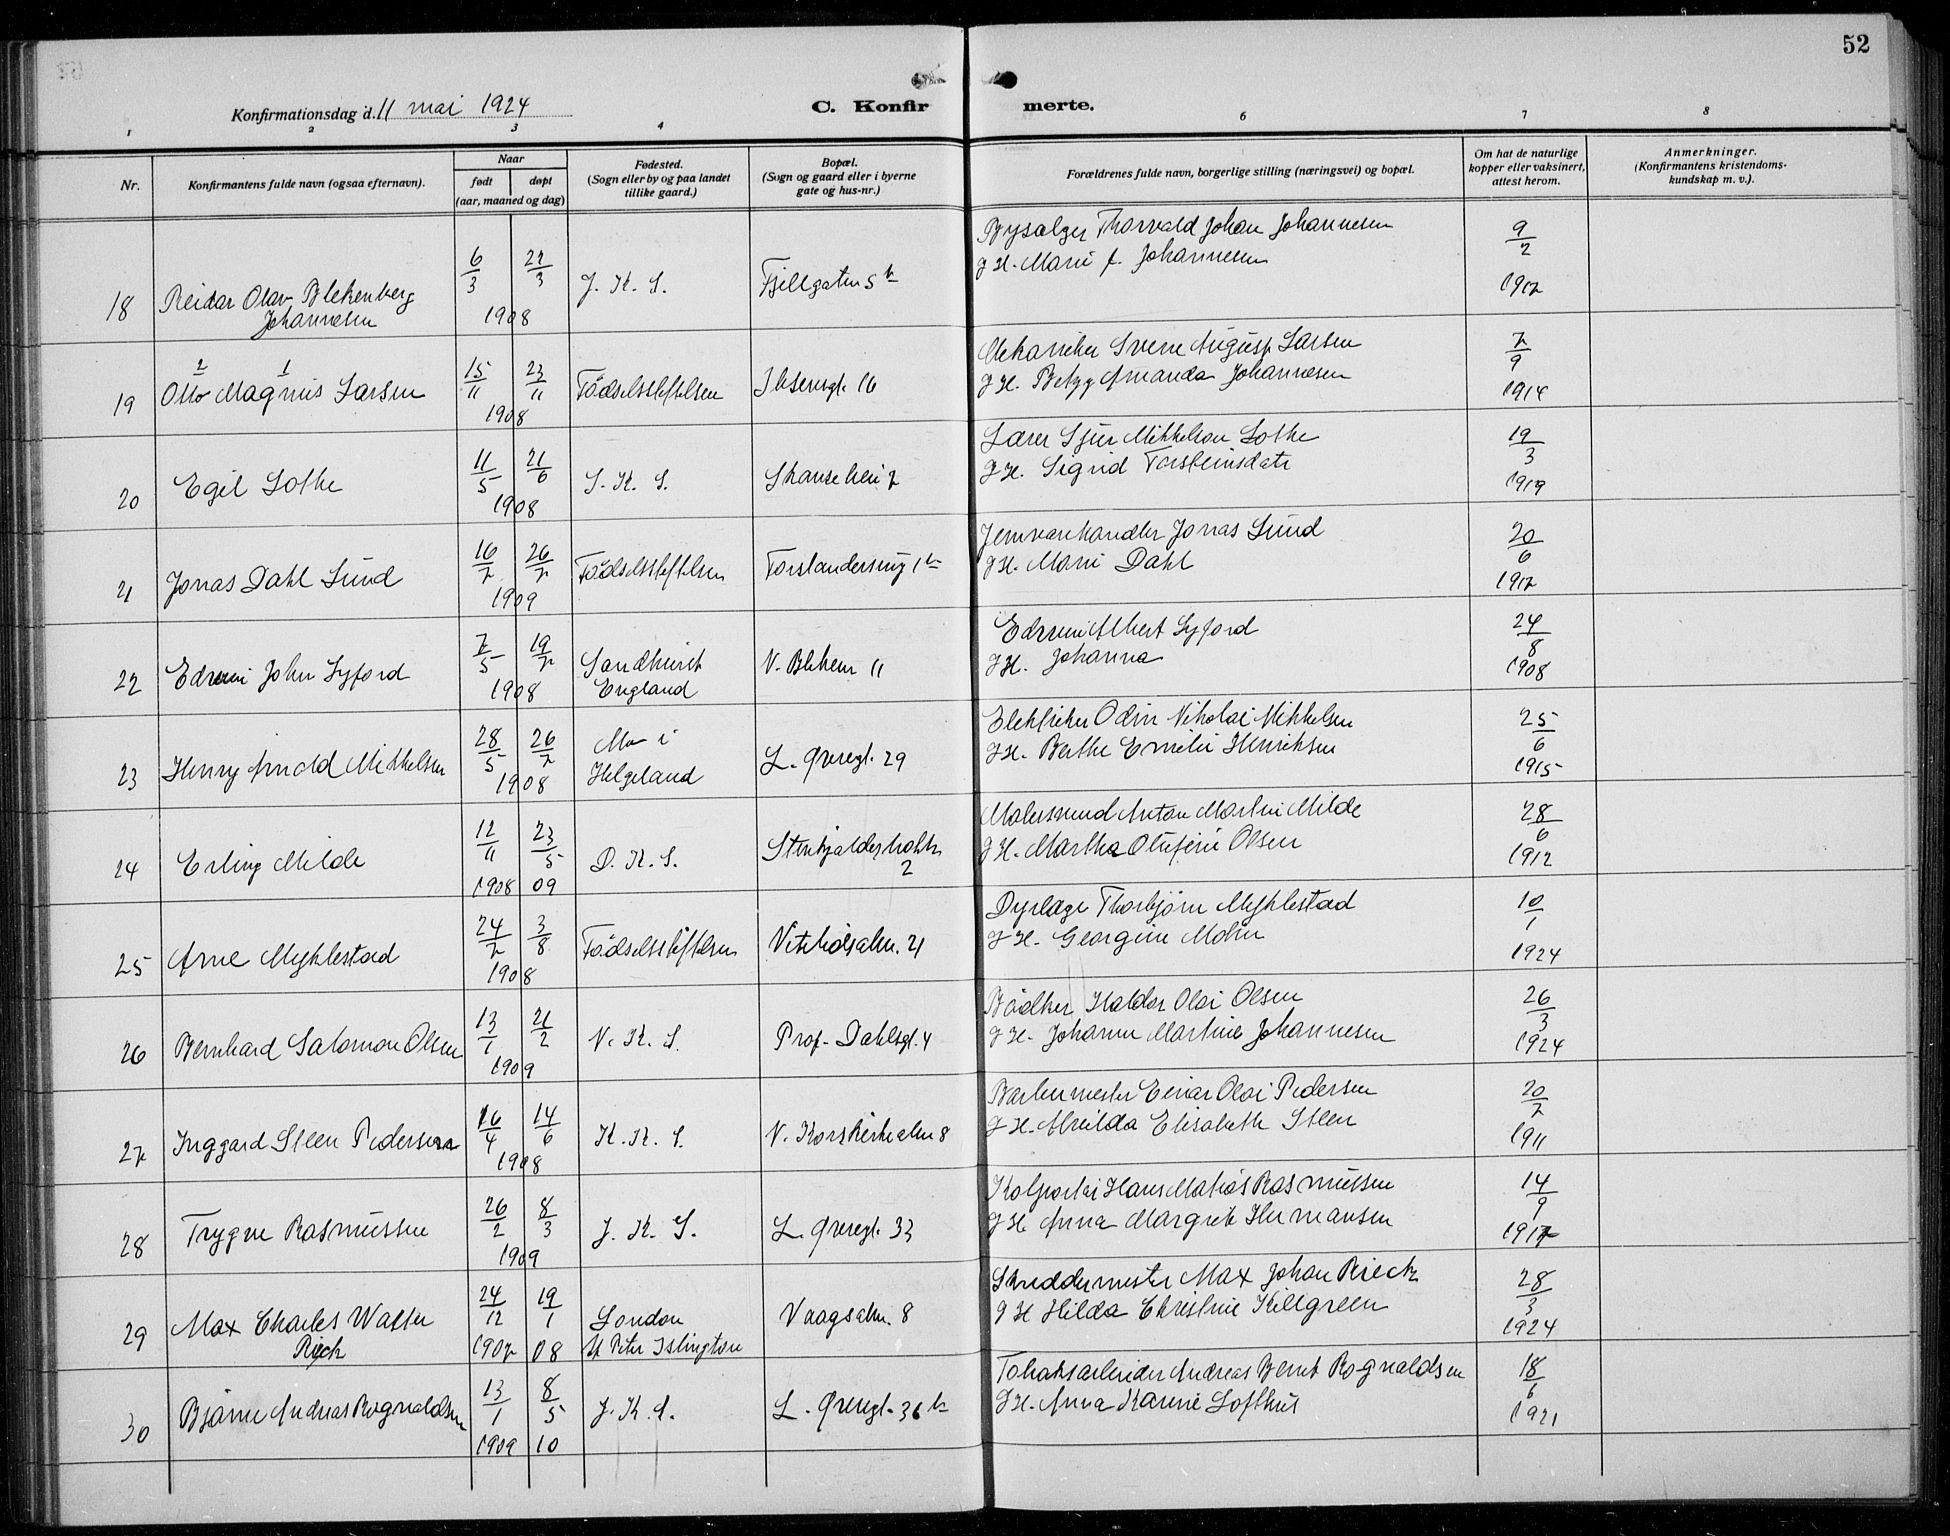 52
Konfirmationsdag d. 11 mai 1924
C. Konfirmerte.
1 2 3 4 6 7 8
Nr.
Konfirmantens fulde navn (ogsaa efternavn).
Naar
født døpt
(aar, maaned og dag)
Fødested.
(Sogn eller by og paa landet
tillike gaard.)
Bopæl.
(Sogn og gaard eller i byerne
gate og hus-nr.)
Forældrenes fulde navn, borgerlige stilling (næringsvei) og bopæl.
Om hat de naturlige
kopper eller vaksinert,
attest herom.
Anmerkninger.
(Konfirmantens kristendoms-
kundskap m. v.).
18 Reidar Olav Blekenberg
Johannesen
6/3 22/3 1908
J. K. S.
Fjellgaten 5 b
Bysælger Thorvald Johan Johannesen
g H. Marie f. Johannesen
9/2 1912
19 Otto Magnus Larsen
2 1
15/11 23/11 1908
Fødselsstiftelsen
Ibsensgt. 16
Mekaniker Sverre August Larsen
g H. Betzy Amanda Johannesen
7/9 1914
20 Egil Lothe
11/5 21/6 1908
S. K. S.
Skansehei 7
Lærer Sjur Mikkelson Lothe
g H. Sigrid Torsteinsdatr
19/3 1919
21 Jonas Dahl Lund
16/7 26/7 1909
Fødselsstiftelsen
Forstandersmug 1 b
Jernvarehandler Jonas Lund
g H. Marie Dahl
20/6 1912
22 Edwin John Lyford
7/5 19/7 1908
Sandhurst
England
V. Blekev 11
Edwin Albert Lyford
g H. Johanna
24/8 1908
23 Henry Arnold Mikkelsen
28/5 26/7 1908
Mo i
Helgeland
L. Øvregt. 29
Elektriker Odin Nikolai Mikkelsen
g H. Berthe Emilie Henriksen
25/6 1915
24 Erling Milde
12/11 23/5
1908 09
D. K. S.
Stenkjelderbakken
2
Malersvend Anton Martin Milde
g H. Martha Olufine Olsen
28/6 1912
25 Arne Myklestad
24/7 3/8 1908
Fødselsstiftelsen
Vetrlidsalm. 21
Dyrlæge Thorbjørn Myklestad
g H. Georgine Mohn
10/1 1924
26 Bernhard Salomon Olsen
13/1 21/2 1909
N. K. S.
Prof. Dahlsgt. 4
Bødker Haldor Olai Olsen
g H. Johanne Martine Johannesen
26/3 1924
27 Inggard Steen Pedersen
16/4 14/6 1908
K. K. S.
N. Korskirkealm 8
Barbermester Einar Olai Pedersen
g H. Alvilda Elisabeth Steen
20/7 1911
28 Trygve Rasmussen
26/2 8/3 1909
J. K. S.
L. Øvregt. 33
Kolportør Hans Matias Rasmussen
g H Anna Margrete Hermansen
14/9 1917
29 Max Charles Walter
Rieck
24/12 19/1
1907 08
London
St Peter Islington
Vaagsalm. 8
Skreddermester Max Johan Rieck
g H Hilda Christine Killgreen
28/3 1924
30 Bjarne Andreas Rognaldsen
13/1 8/5
1909 10
J. K. S.
L. Øvregt. 36 b
Tobaksarbeider Andreas Bernt Rognaldsen
g H. Anna Karine Lofthus
18/6 1921